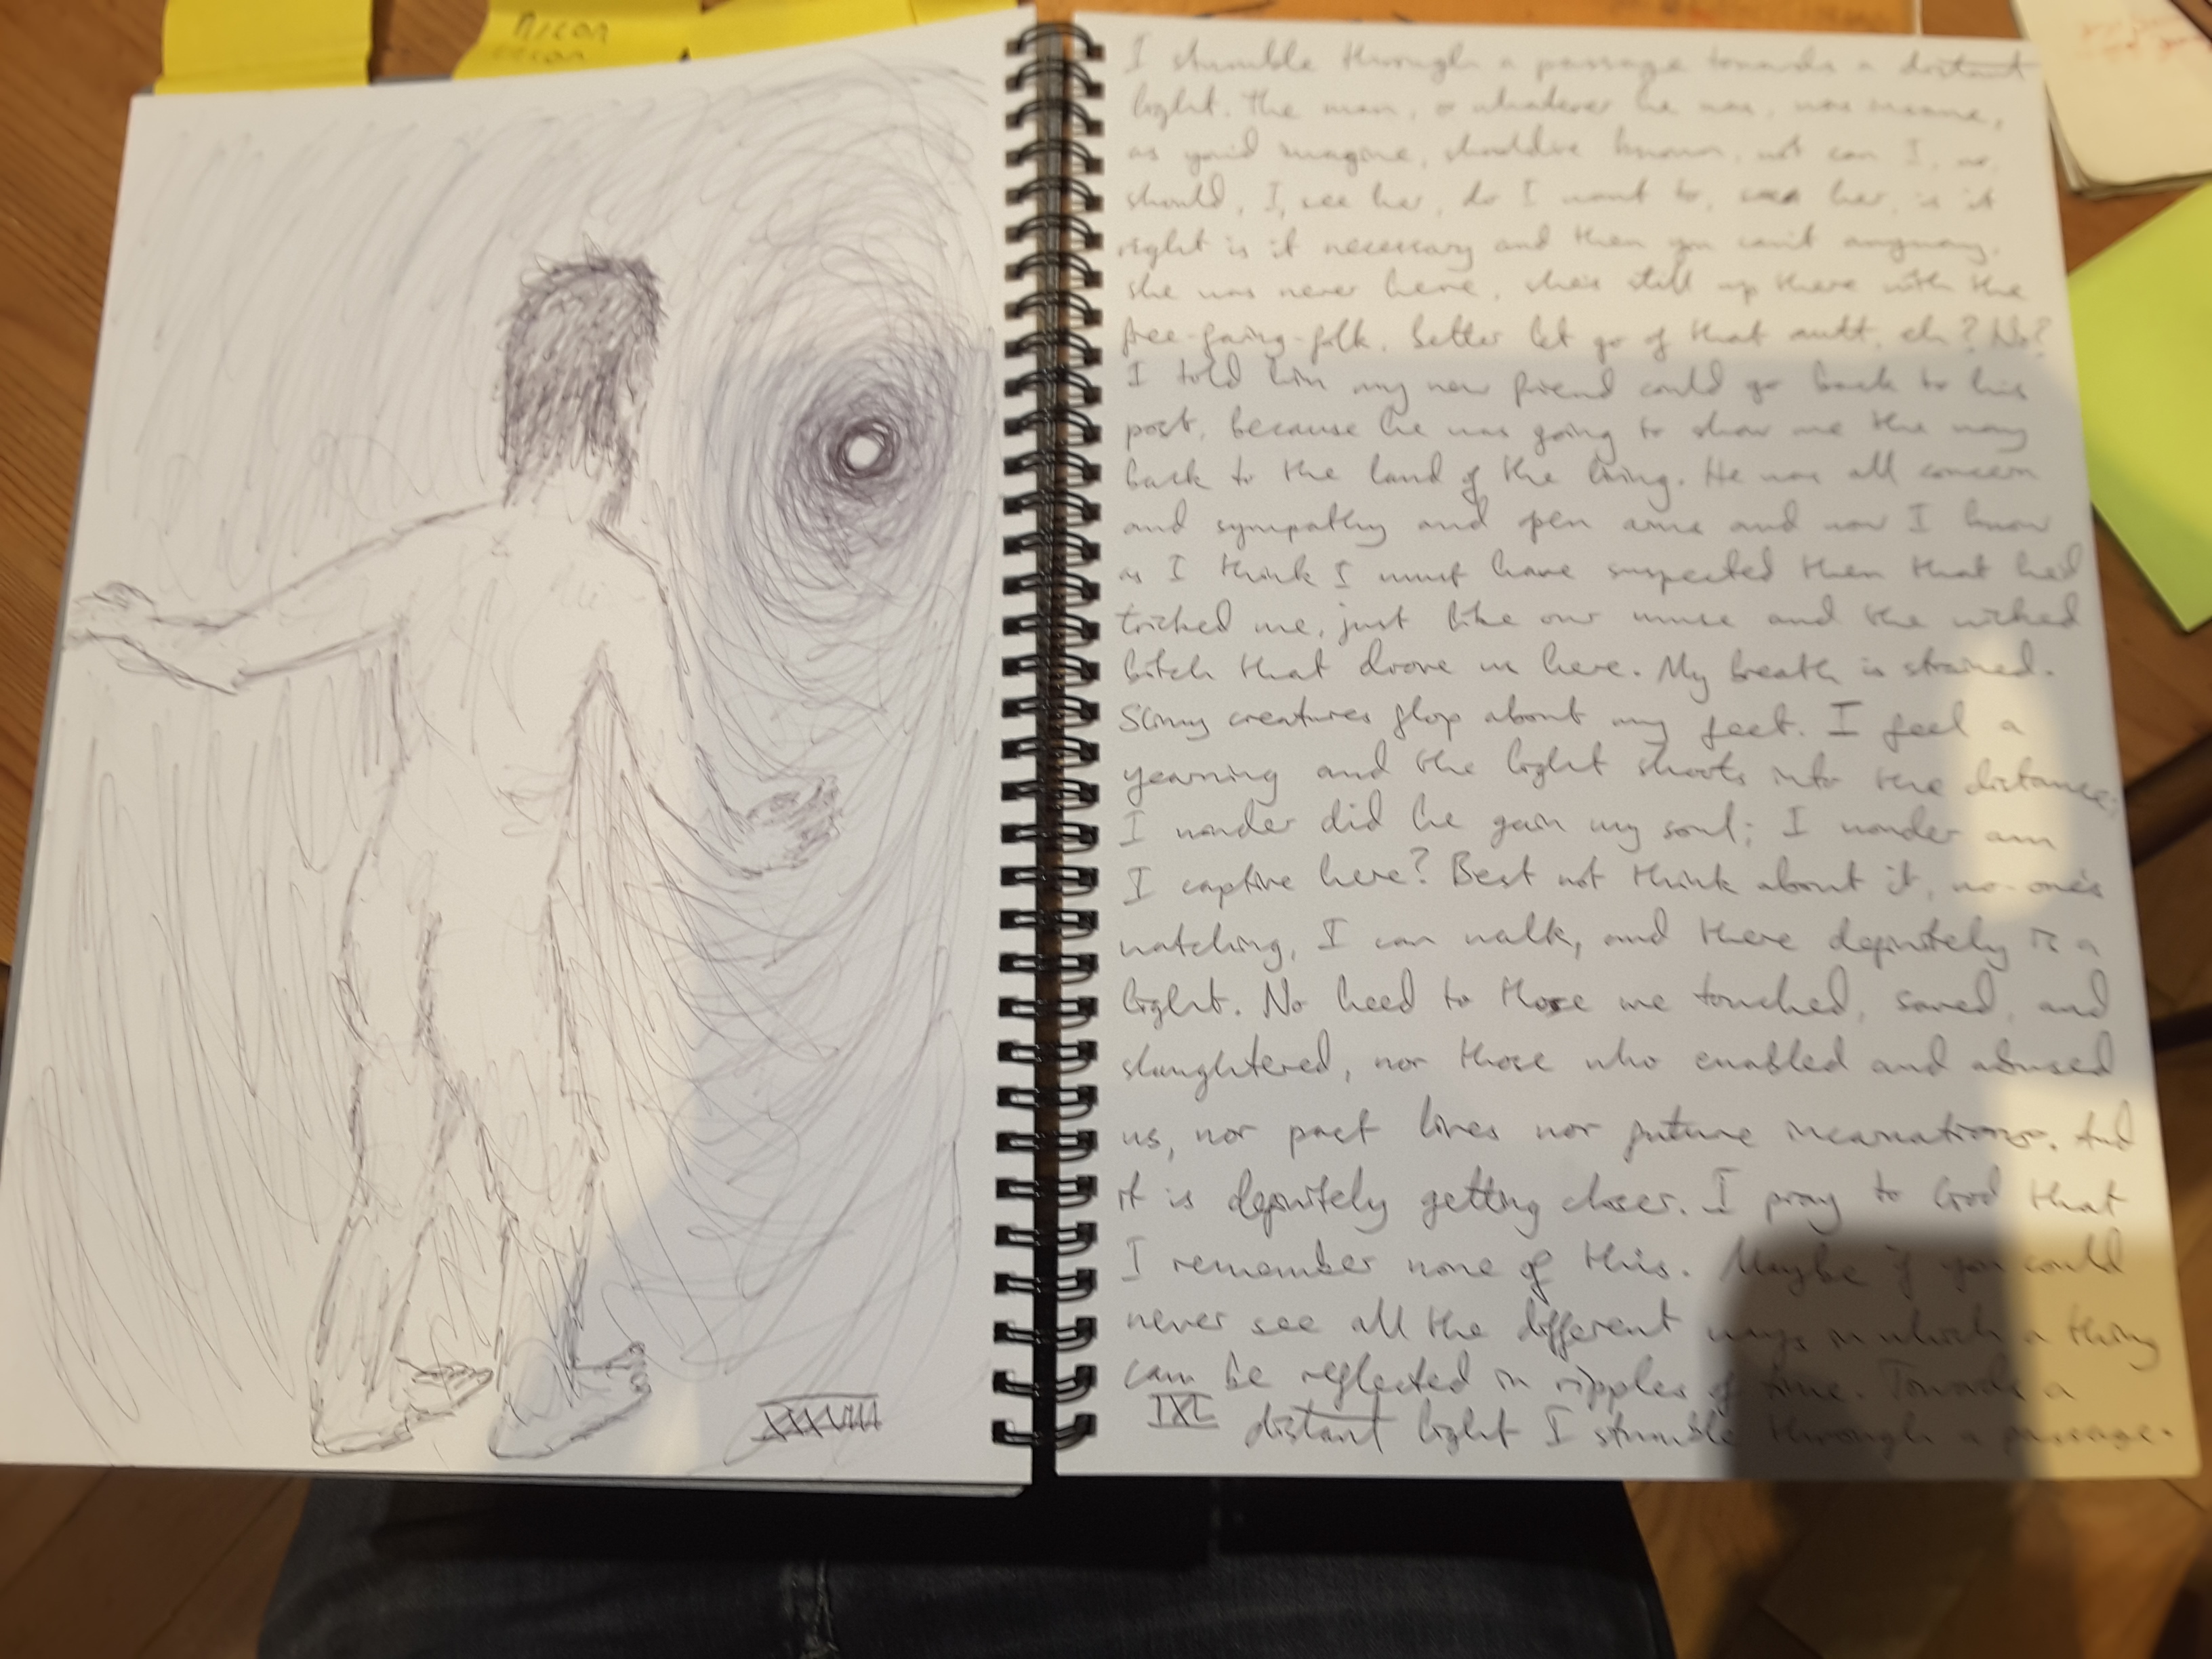 Nicon
XXXVIII
I stumble through a passage towards a distant
light. The man, or whatever he was, was insane,
as you'd imagine, should've known, not can I, no,
should, I, see her, do I want to, see her, is it
right is it necessary and then you can't anyway.
she was never here, she's still up there with the
free-faring-folk. better let go of that eh? No?
I told him my new friend could go back to his
post, because he was going to show me the way
back to the land of the living. He was all concern
and sympathy and open arms and now I know
as I think I must have suspected then that he'd
tricked me, just like our muse and the wicked
bitch that drove us here. My breath is strained.
Slimy creatures flop about my feet. I feel a
yearning and the light shoots into the distance;
I wonder did he gain my soul; I wonder am
I captive here? Best not think about it, no-one's
watching, I can walk, and there definitely is a
light. No heed to those we touched, saved, and
slaughtered, nor those who enabled and abused
us, nor past lives nor future incarnations. And
it is definitely getting closer. I pray to God that
I remember none of this. Maybe if you could
never see all the different ways in which a thing
can be reflected in ripples of time. Towards a
IXL distant light I stumble through a passage.